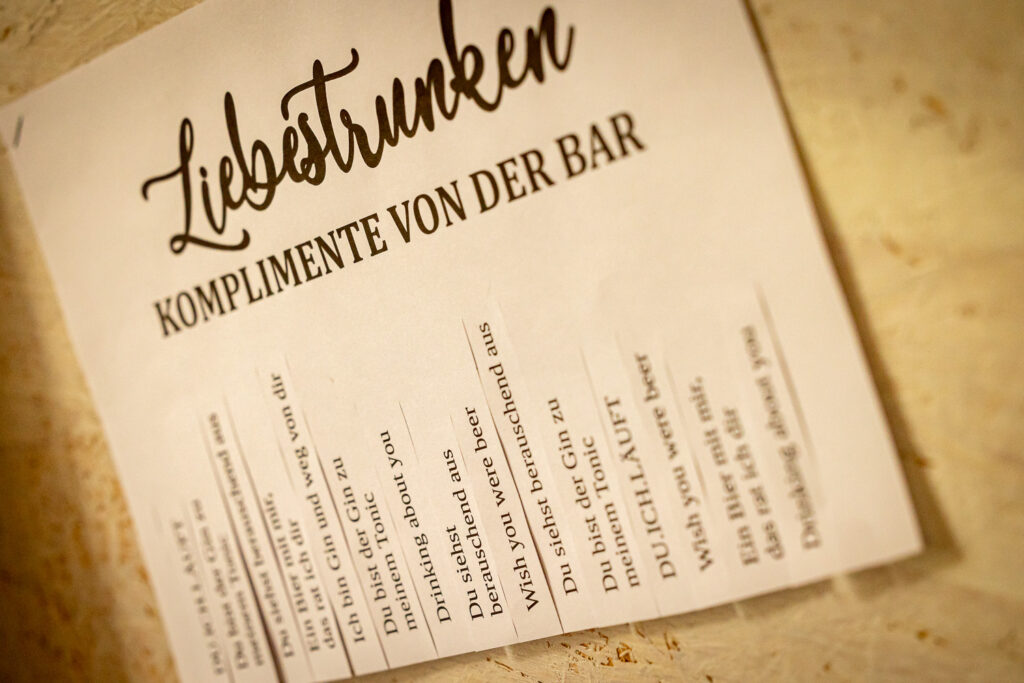 Liebestrunken
KOMPLIMENTE VON DER BAR
DU.ICH.LÄUFT
Du bist der Gin zu
meinem Tonic
Du siehst berauschend aus
Ein Bier mit mir,
das rat ich dir
Ich bin Gin und weg von dir
Du bist der Gin zu
meinem Tonic
Drinking about you
Du siehst
berauschend aus
Wish you were beer
Du siehst berauschend aus
Du bist der Gin zu
meinem Tonic
DU.ICH.LÄUFT
Wish you were beer
Ein Bier mit mir,
das rat ich dir
Drinking about you